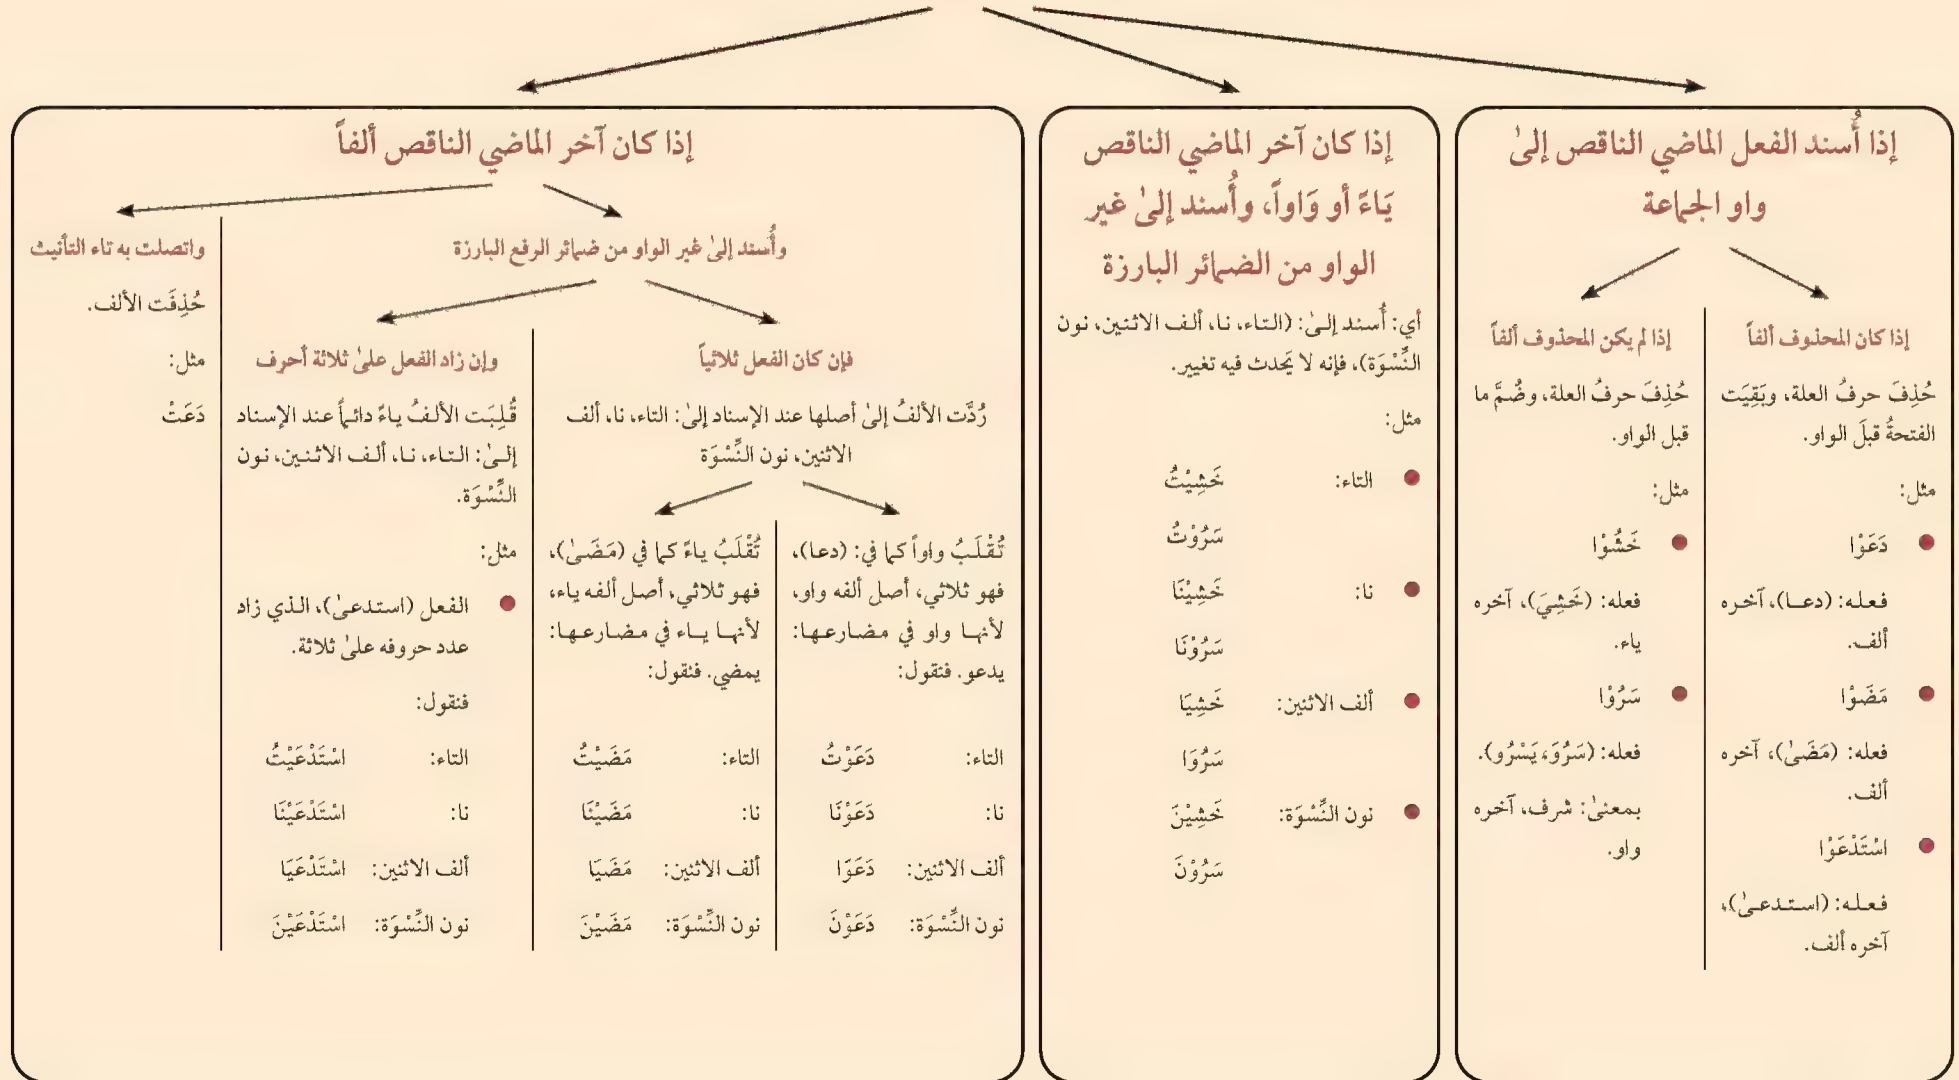 إذا أُسند الفعل الماضي الناقص إلىٰ
واو الجماعة
إذا كان المحذوف ألفاً
حُذِفَ حرفُ العلة، وبَقِيَت
الفتحةُ قبلَ الواو.
مثل:
دَعَوْا
فعله: (دعا)، آخره
ألف.
مَضَوْا
فعله: (مَضَىٰ)، آخره
ألف.
اسْتَدْعَوْا
فعله: (استدعىٰ)،
آخره ألف.
إذا لم يكن المحذوف ألفاً
حُذِفَ حرفُ العلة، وضُمَّ ما
قبل الواو.
مثل:
خَشُوْا
فعله: (خَشِيَ)، آخره
ياء.
سَرُوْا
فعله: (سَرُوَ، يَسْرُو).
بمعنىٰ: شرف، آخره
واو.
إذا كان آخر الماضي الناقص
يَاءً أو وَاواً، وأُسند إلىٰ غير
الواو من الضمائر البارزة
أي: أُسند إلىٰ: (التاء، نا، ألف الاثنين، نون
النِّسْوَة)، فإنه لا يَحدث فيه تغيير.
مثل:
التاء: خَشِيْتُ
سَرُوْتُ
نا: خَشِيْنَا
سَرُوْنَا
ألف الاثنين: خَشِيَا
سَرُوَا
نون النِّسْوَة: خَشِيْنَ
سَرُوْنَ
إذا كان آخر الماضي الناقص ألفاً
وأُسند إلىٰ غير الواو من ضمائر الرفع البارزة
فإن كان الفعل ثلاثياً
رُدَّت الألفُ إلىٰ أصلها عند الإسناد إلىٰ: التاء، نا، ألف
الاثنين، نون النِّسْوَة
تُقْلَبُ واواً كما في: (دعا)،
فهو ثلاثي، أصل ألفه واو،
لأنها واو في مضارعها:
يدعو. فنقول:
التاء: دَعَوْتُ
نا: دَعَوْنَا
ألف الاثنين: دَعَوَا
نون النِّسْوَة: دَعَوْنَ
تُقْلَبُ ياءً كما في (مَضَىٰ)،
فهو ثلاثي، أصل ألفه ياء،
لأنها ياء في مضارعها:
يمضي. فنقول:
التاء: مَضَيْتُ
نا: مَضَيْنَا
ألف الاثنين: مَضَيَا
نون النِّسْوَة: مَضَيْنَ
وإن زاد الفعل علىٰ ثلاثة أحرف
قُلِبَت الألفُ ياءً دائماً عند الإسناد
إلىٰ: التاء، نا، ألف الاثنين، نون
النِّسْوَة.
مثل:
الفعل (استدعىٰ)، الذي زاد
عدد حروفه علىٰ ثلاثة.
فنقول:
التاء: اسْتَدْعَيْتُ
نا: اسْتَدْعَيْنَا
ألف الاثنين: اسْتَدْعَيَا
نون النِّسْوَة: اسْتَدْعَيْنَ
واتصلت به تاء التأنيث
حُذِفَت الألف.
مثل:
دَعَتْ